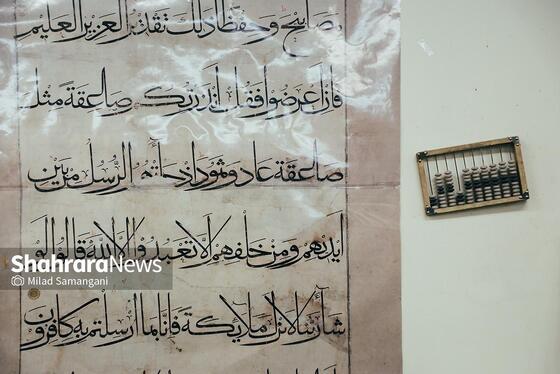 مصابيح وحفظا ذلك تقدير العزيز العليم
فان اعرضوا فقل انذرتكم صاعقة مثل
صاعقة عاد وثمود اذ جاءتهم الرسل من بين
ايديهم ومن خلفهم الا تعبدوا الا الله قالوا لو
شاء ربنا لانزل ملايكة فانا بما ارسلتم به كافرون
ShahraraNews
Milad Samangani